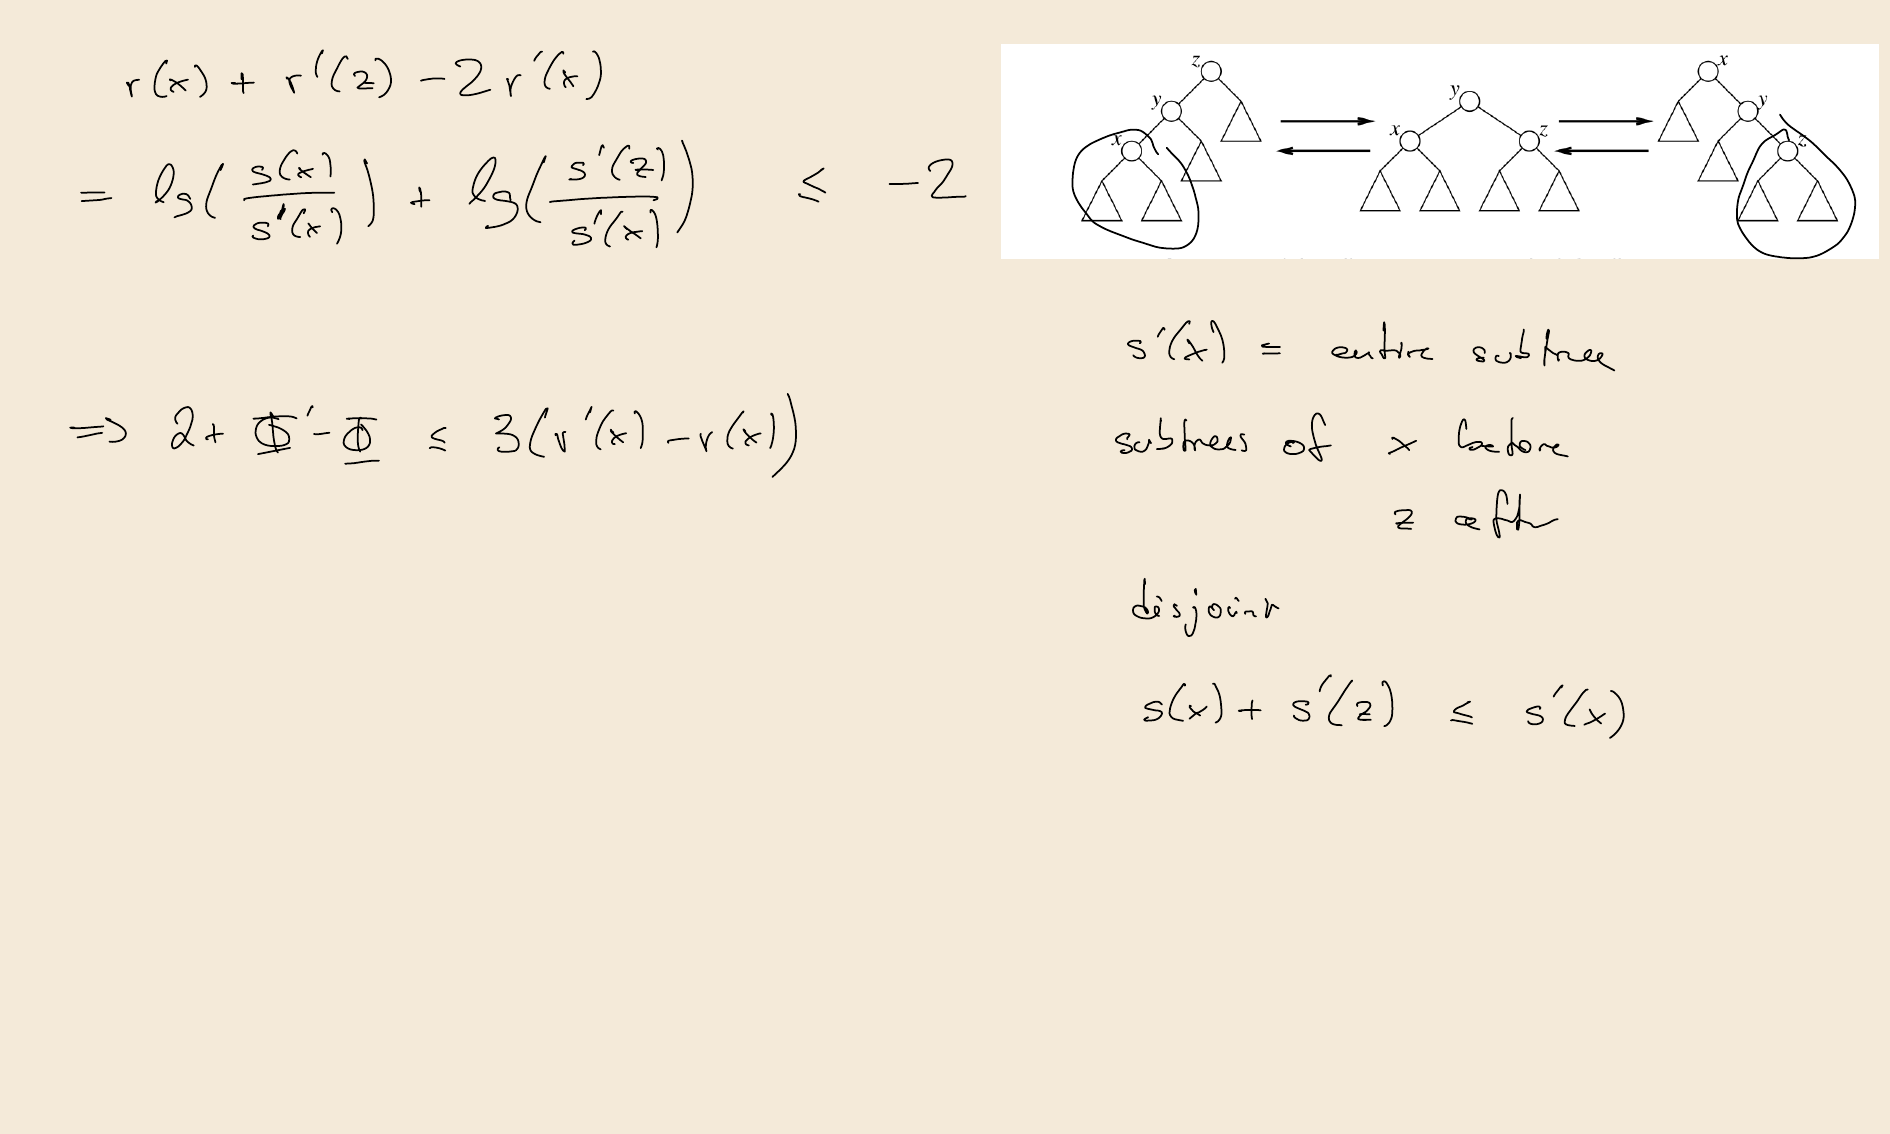 r(x) + r'(z) - 2 r'(x)
= lg( s(x) / s'(x) ) + lg( s'(z) / s'(x) ) ≤ -2
=> 2 + Φ' - Φ ≤ 3(r'(x) - r(x))
z
y
x
y
x
z
x
y
z
s'(x) = entire subtree
subtrees of x before
z after
disjoint
s(x) + s'(z) ≤ s'(x)